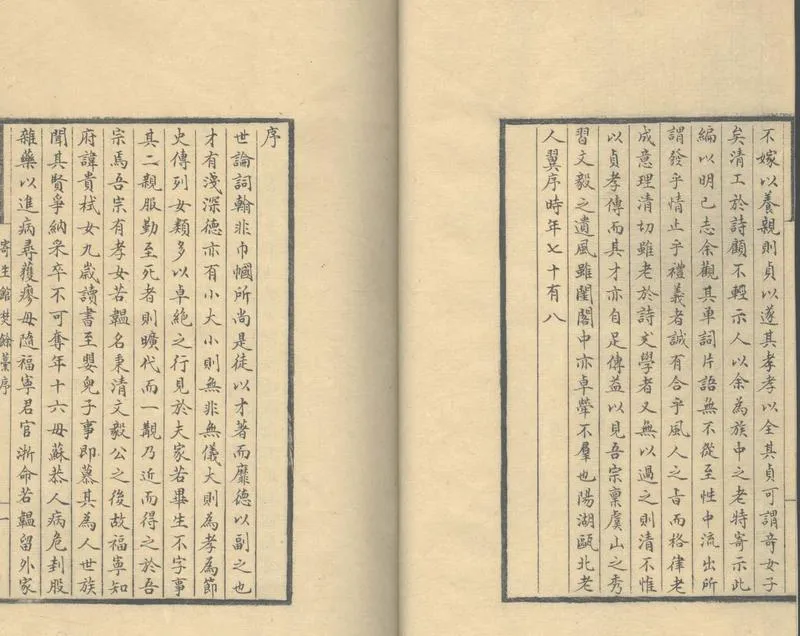 不嫁以養親則貞以遂其孝孝以全其貞可謂奇女子
矣清工於詩顧不輕示人以余為族中之老特寄示此
編以明己志余觀其單詞片語無不從至性中流出所
謂發乎情止乎禮義者誠有合乎風人之旨而格律老
成意理清切雖老於詩文學者又無以過之則清不惟
以貞孝傳而其才亦自足傳益以見吾宗稟虞山之秀
習文毅之遺風雖閨閣中亦卓犖不羣也陽湖甌北老
人翼序時年七十有八
序
世論詞翰非巾幗所尚是徒以才著而靡德以副之也
才有淺深德亦有小大小則無非無儀大則為孝為節
史傳列女類多以卓絕之行見於夫家若畢生不字事
其二親服勤至死者則曠代而一覯乃近而得之於吾
宗焉吾宗有孝女若韞名秉清文毅公之後故福寧知
府諱貴栻女九歲讀書至嬰兒子事即慕其為人世族
聞其賢爭納采卒不可奪年十六母蘇恭人病危刲股
雜藥以進病尋獲瘳母隨福寧君官浙命若韞留外家
寄生館焚餘藁序 一